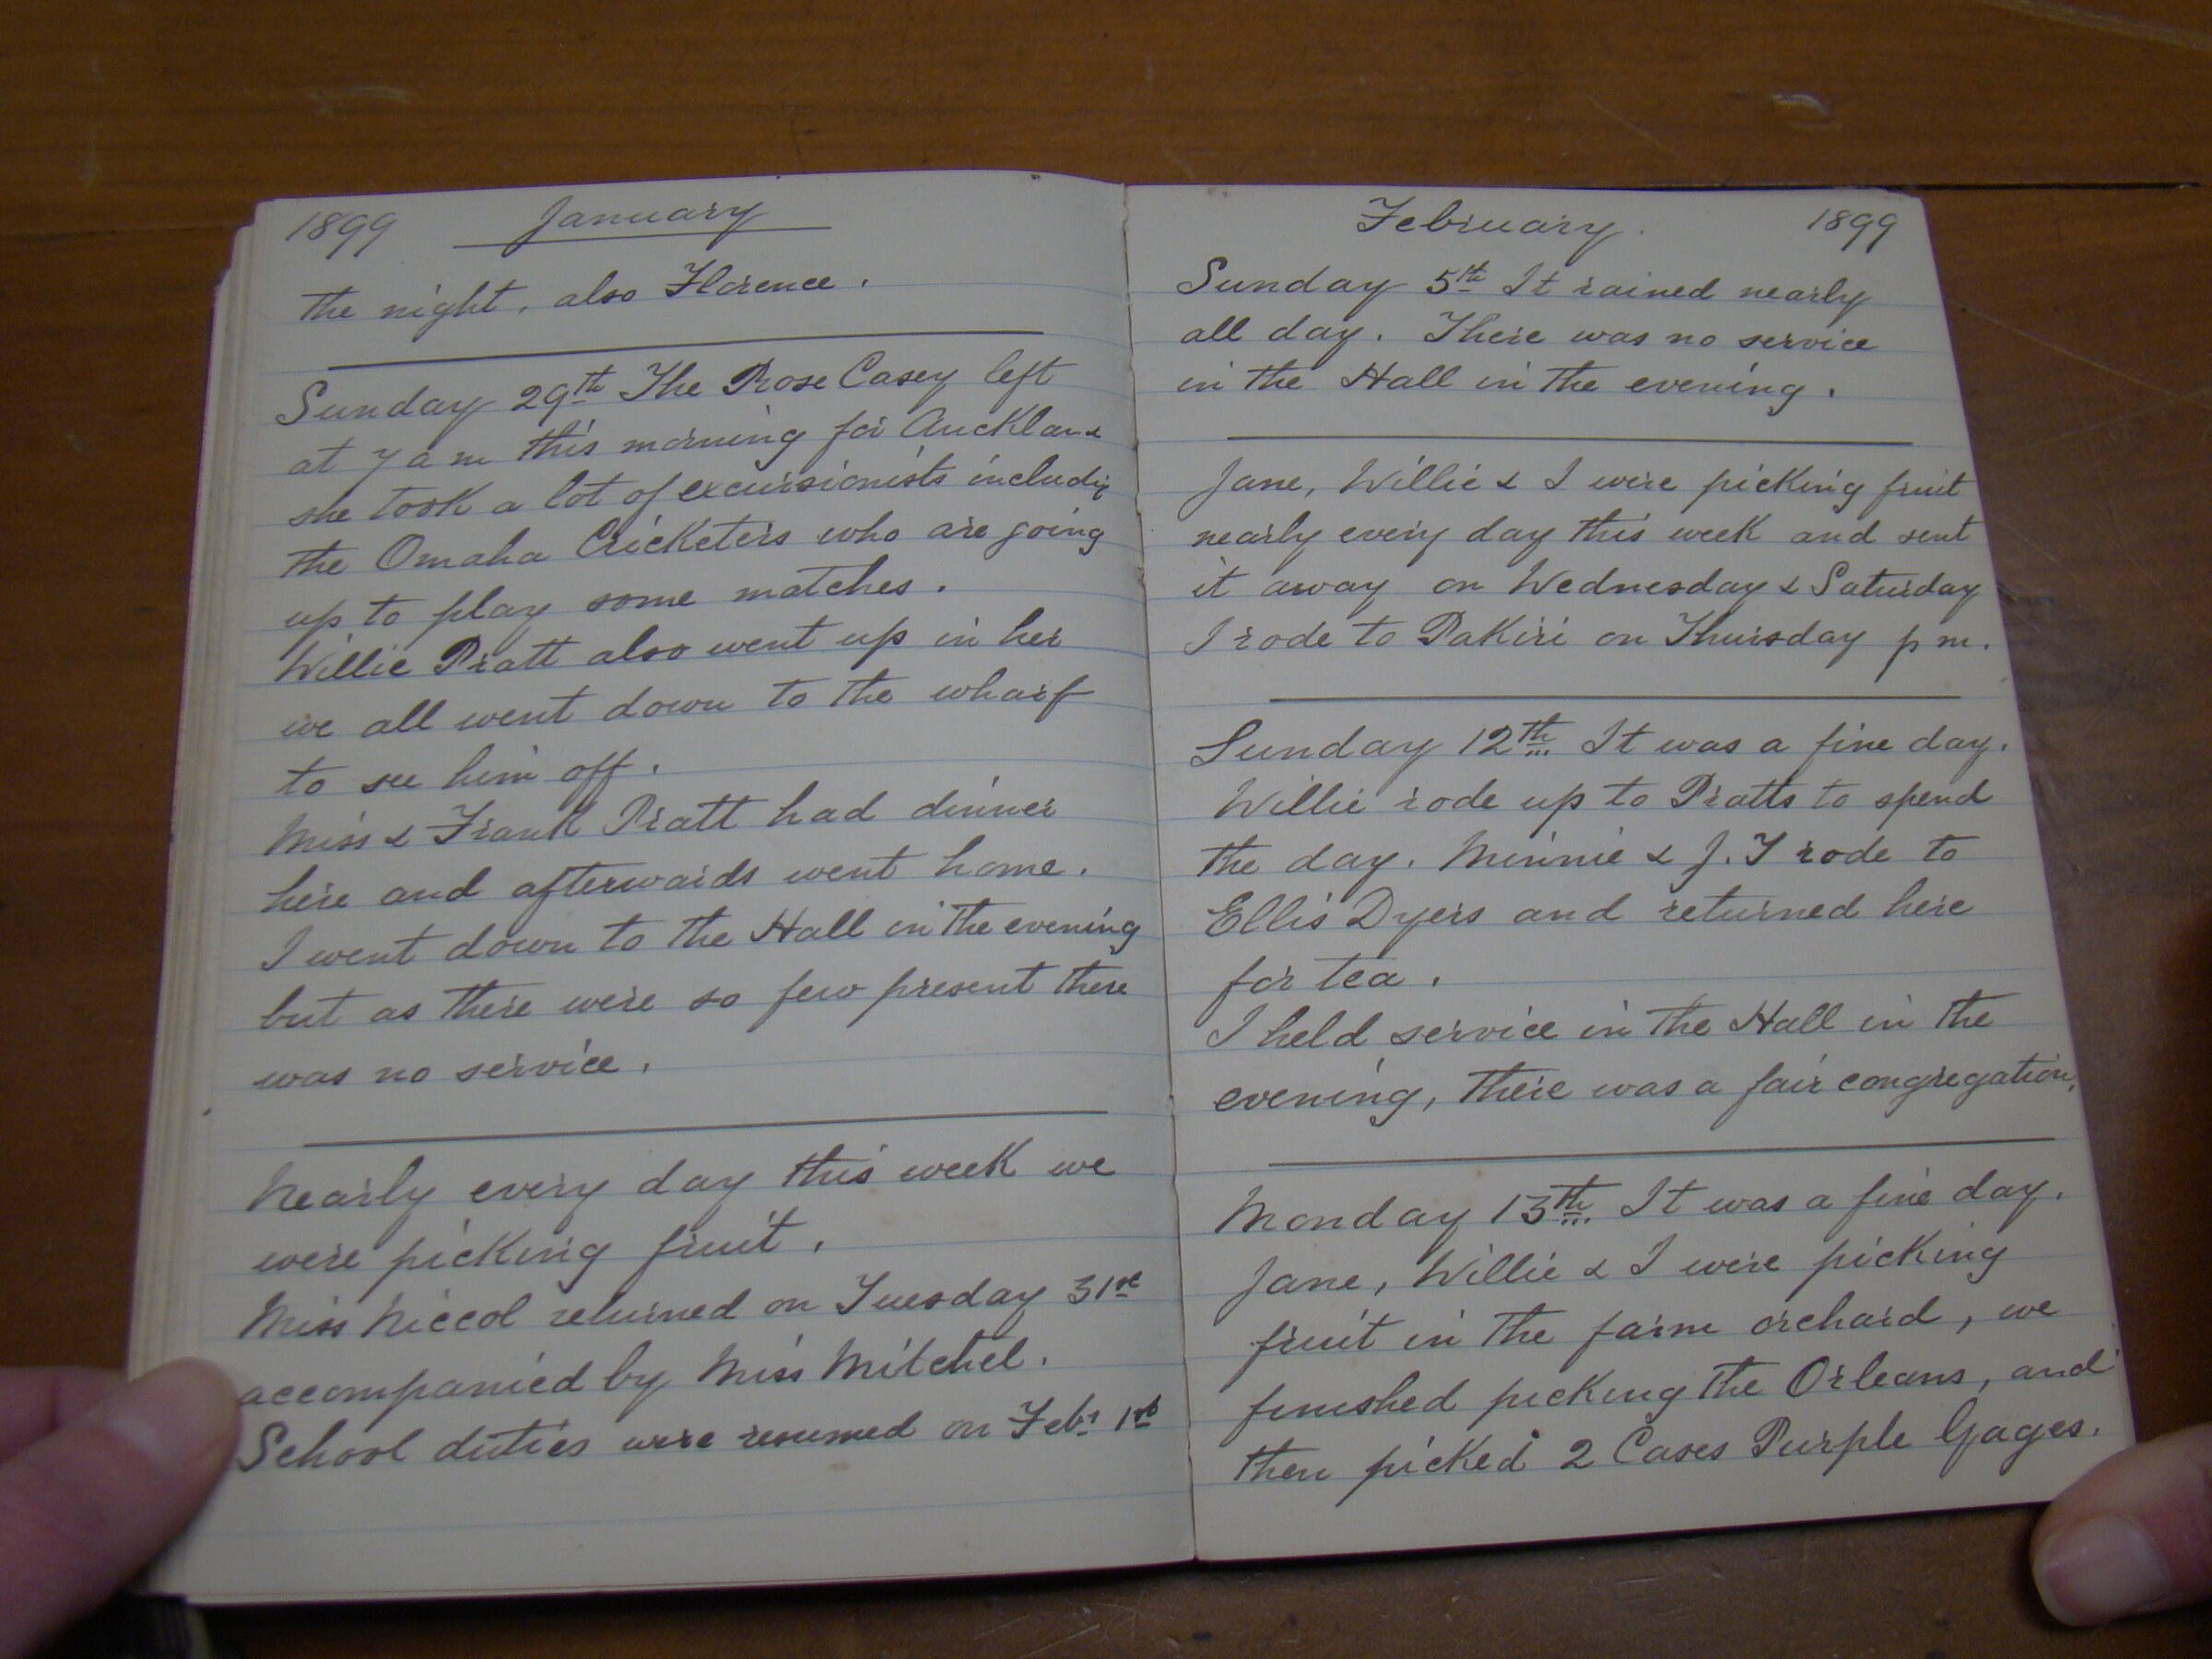 1899 January
the night, also Florence.
Sunday 29th The Rose Casey left
at 7 a m this morning for Auckland
she took a lot of excursionists includig
the Omaha Cricketers who are going
up to play some matches.
Willie Pratt also went up in her
we all went down to the wharf
to see him off.
Miss & Frank Pratt had dinner
here and afterwards went home.
I went down to the Hall in the evening
but as there were so few present there
was no service.
Nearly every day this week we
were picking fruit.
Miss Niccol returned on Tuesday 31st
accompanied by Miss Mitchel.
School duties were resumed on Febr 1st
February. 1899
Sunday 5th It rained nearly
all day. There was no service
in the Hall in the evening.
Jane, Willie & I were picking fruit
nearly every day this week and sent
it away on Wednesday & Saturday
I rode to Pakiri on Thursday p m.
Sunday 12th It was a fine day.
Willie rode up to Pratts to spend
the day. Minnie & J. T rode to
Ellis Dyers and returned here
for tea.
I held service in the Hall in the
evening, there was a fair congregation.
Monday 13th It was a fine day.
Jane, Willie & I were picking
fruit in the farm orchard, we
finished picking the Orleans, and
then picked 2 Cases Purple Gages.